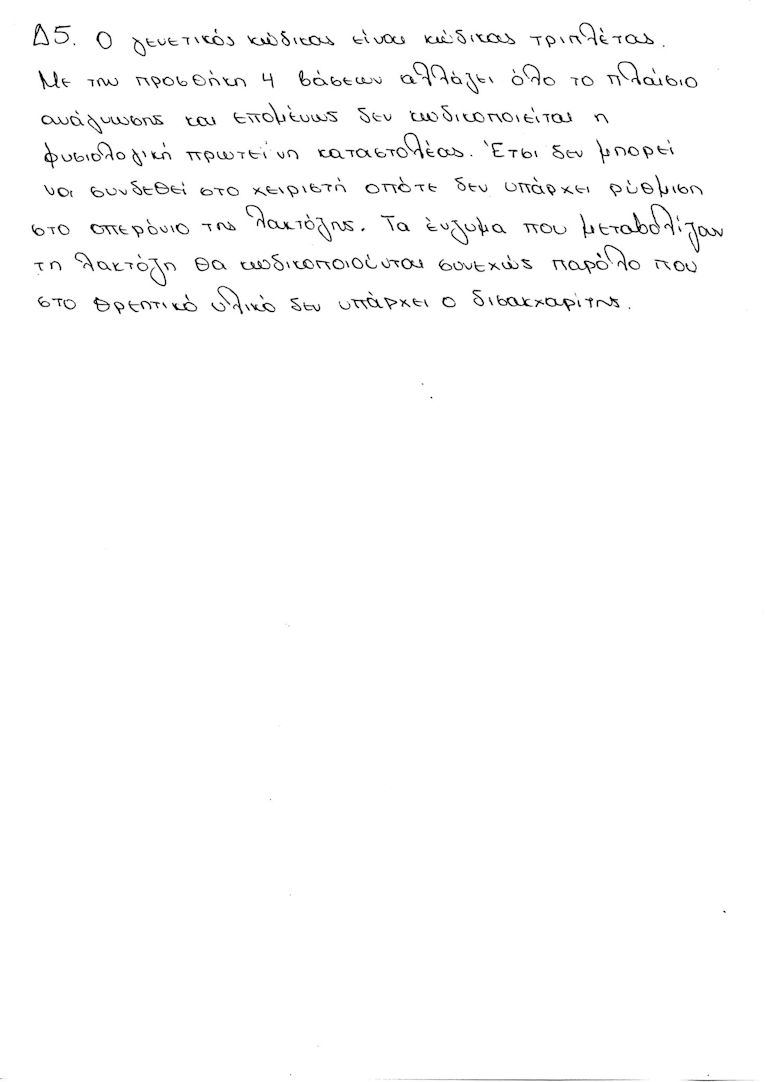 Δ5. Ο γενετικός κώδικας είναι κώδικας τριπλέτας.
Με την προσθήκη 4 βάσεων αλλάζει όλο το πλαίσιο
ανάγνωσης και επομένως δεν κωδικοποιείται η
φυσιολογική πρωτεΐνη καταστολέας. Έτσι δεν μπορεί
να συνδεθεί στο χειριστή οπότε δεν υπάρχει ρύθμιση
στο οπερόνιο της λακτόζης. Τα ένζυμα που μεταβολίζαν
τη λακτόζη θα κωδικοποιούνται συνεχώς παρόλο που
στο θρεπτικό υλικό δεν υπάρχει ο δισακχαρίτης.